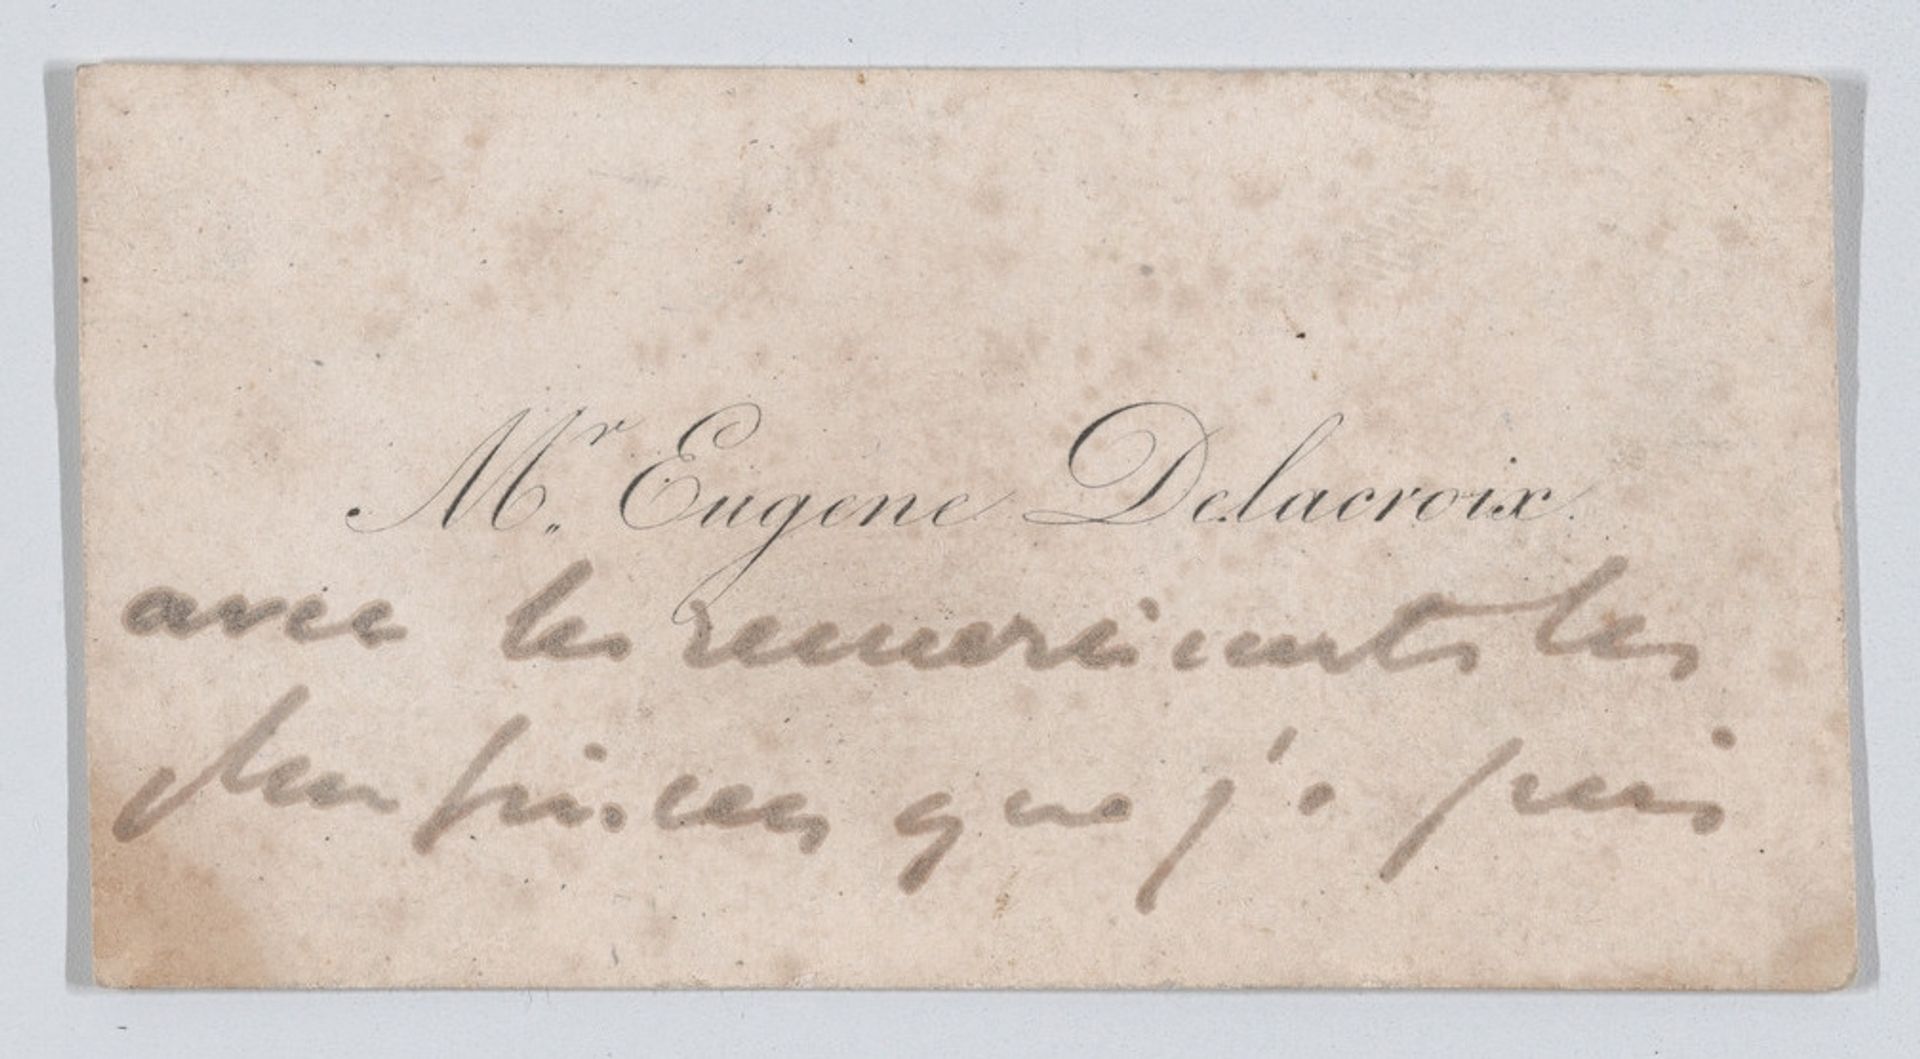 Mr. Eugène Delacroix
avec les remerciments les
plus sinceres que je puis